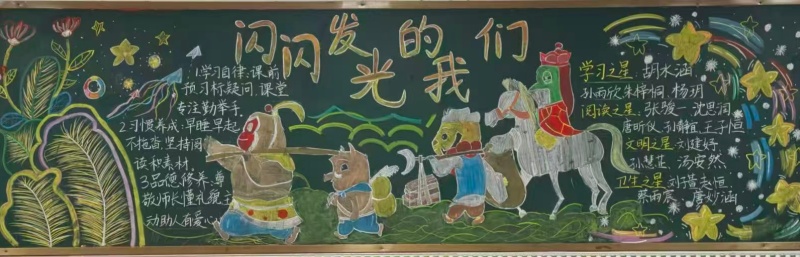 闪闪发光的我们
1.学习自律:课前
预习标疑问.课堂
专注勤举手.
2.习惯养成:早睡早起.
不拖沓.坚持阅
读积素材.
3.品德修养:尊
敬师长懂礼貌.主
动助人有爱心
学习之星:胡水涵
孙雨欣 朱梓桐 杨玥
阅读之星:张骏一 沈思润
唐昕仪 孙静怡 王子恒
文明之星 刘建妤
孙慧芷 汤安然
卫生之星 刘景 赵恒
蔡雨宸 唐妙涵